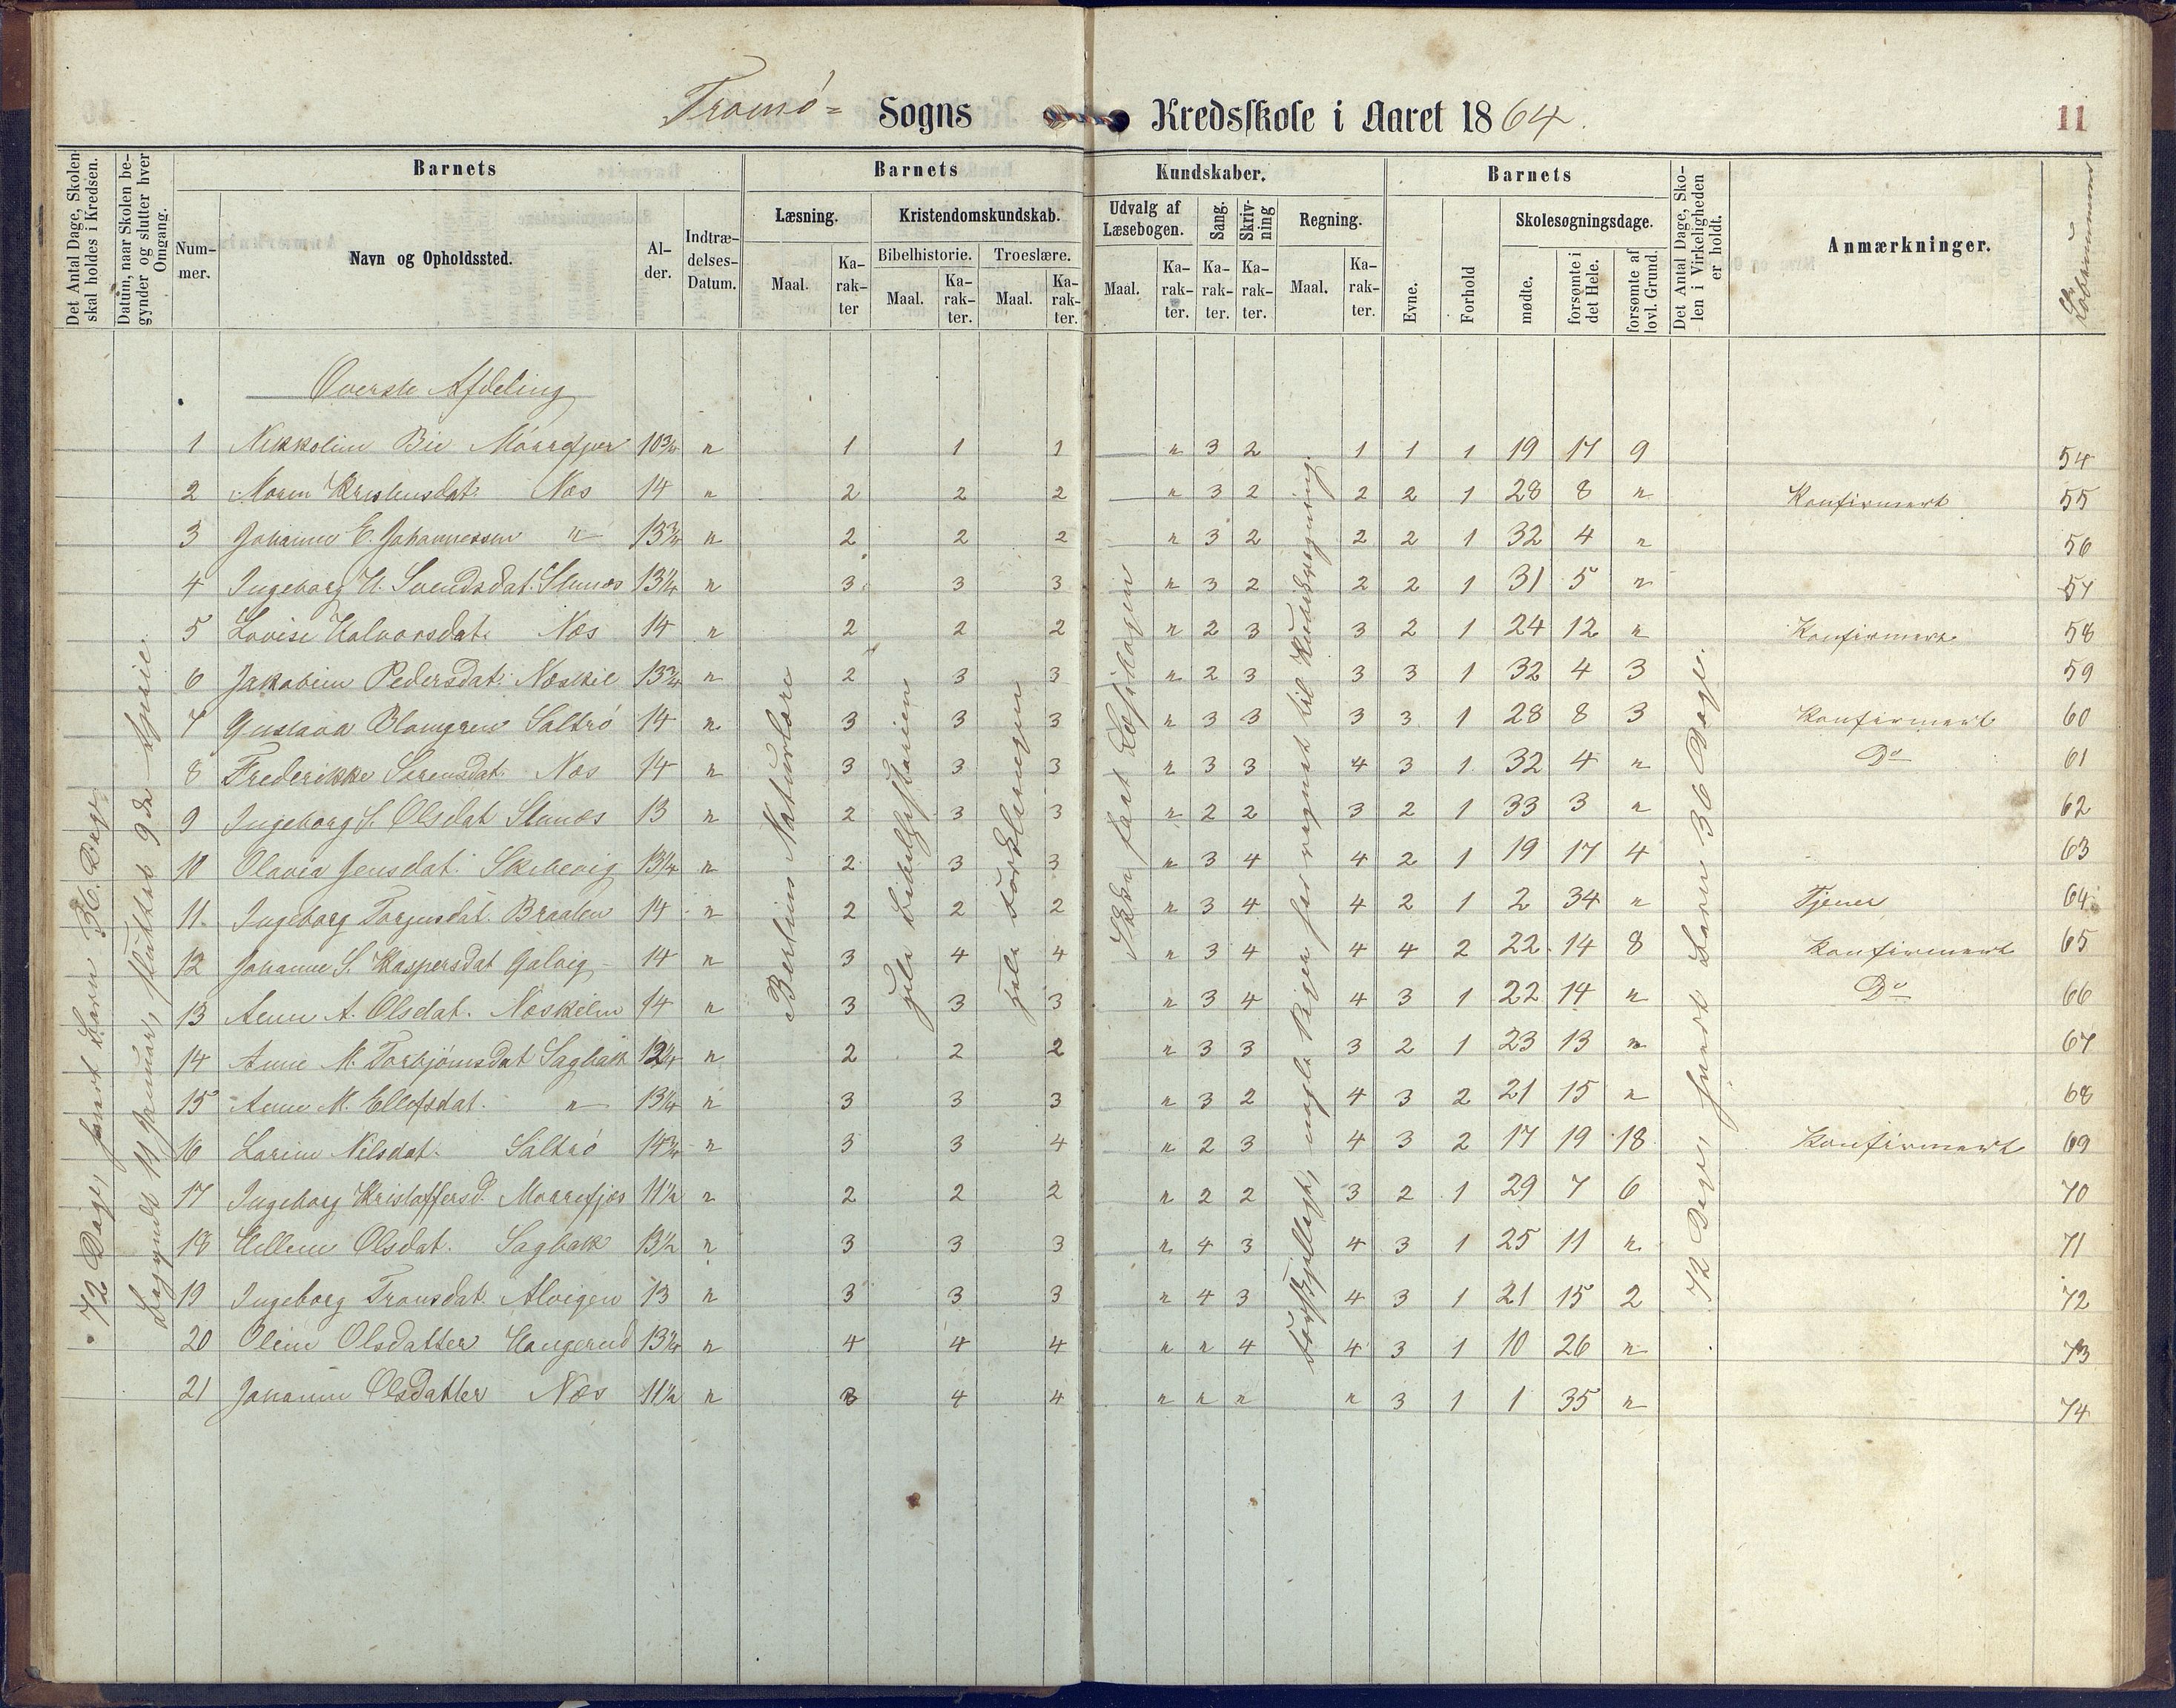 Tromø= Sogns Kredsskole i Aaret 1864.
11
Det Antal Dage, Skolen skal holdes i Kredsen.
Datum, naar Skolen begynder og slutter hver Omgang.
Barnets
Nummer.
Navn og Opholdssted.
Alder.
Indtrædelses-Datum.
Barnets Kundskaber.
Læsning.
Maal.
Karakter
Kristendomskundskab.
Bibelhistorie.
Maal.
Karakter.
Troeslære.
Maal.
Karakter.
Udvalg af Læsebogen.
Maal.
Karakter.
Sang.
Karakter.
Skrivning
Karakter.
Regning.
Maal.
Karakter.
Barnets
Evne.
Forhold
Skolesøgningsdage.
mødte.
forsømte i det Hele.
forsømte af lovl. Grund.
Det Antal Dage, Skolen i Virkeligheden er holdt.
Anmærkninger.
Løbenummer
72 Dage, hvert Barn 36 Dage.
Begyndt 11 Januar, sluttet 9de April.
Naturlære
hele bibelhistorien
hele Forklaringen
lært Læsebogen
regnet til
72 Dage, hvert Barn 36 Dage.
Øverste Afdeling
1 Nikkoline Bie Mårrefjær 10¾ " 1 1 1 " 3 2 1 1 1 19 17 9 54
2 Maren Kristensdat. Næs 14 " 2 2 2 " 3 2 2 2 1 28 8 " Konfirmert 55
3 Johanne E. Johannessen " 13¾ " 2 2 2 " 3 2 2 2 1 32 4 " 56
4 Ingeborg H. Svendsdat. Stunæs 13¼ " 3 3 3 " 3 2 2 2 1 31 5 " 57
5 Lovise Halvorsdat. Næs 14 " 2 2 2 " 2 3 3 2 1 24 12 " Konfirmert 58
6 Jakobine Pedersdat. Næskil 13¾ " 2 3 3 " 2 3 3 3 1 32 4 3 59
7 Gustava Blomgren Saltrø 14 " 3 3 3 " 3 3 3 3 1 28 8 3 Konfirmert 60
8 Frederikke Sørensdat. Næs 14 " 3 3 3 " 3 3 4 3 1 32 4 " Do 61
9 Ingeborg S. Olsdat Stunæs 13 " 2 3 3 " 2 2 3 2 1 33 3 " 62
10 Olavia Jensdat. Skibevig 13¼ " 2 3 3 " 3 4 4 2 1 19 17 4 63
11. Ingeborg Torjusdat. Braaten 14 " 2 2 2 " 3 4 4 2 1 2 34 " Tjener 64
12 Johanne S. Kaspersdat Galvig 14 " 3 4 4 " 3 4 4 4 2 22 14 8 Konfirmert 65
13 Anne A. Olsdat. Næskilen 14 " 3 3 3 " 3 4 4 3 1 22 14 " Do 66
14 Anne M. Torbjørnsdat Sagbak 12¼ " 2 2 2 " 3 3 3 2 1 23 13 " 67
15 Anne M. Ellefsdat. " 13¼ " 3 3 3 " 3 2 4 3 2 21 15 " 68
16 Larine Nilsdat. Saltrø 14¾ " 3 3 4 " 2 3 4 3 2 17 19 18 Konfirmert 69
17 Ingeborg Kristoffersd. Marrefjær 11½ " 2 2 2 " 2 2 3 2 1 29 7 6 70
18 Hellene Olsdat. Sagbak 13½ " 3 3 3 " 4 3 4 3 1 25 11 " 71
19 Ingeborg Tronsdat. Alvigen 13 " 3 3 3 " 4 3 4 3 1 21 15 2 72
20 Oline Olsdatter Haugerud 13¼ " 4 4 4 " " 4 4 3 1 10 26 " 73
21 Johanne Olsdatter Næs 11½ " 3 4 4 " " " " 3 1 1 35 " 74